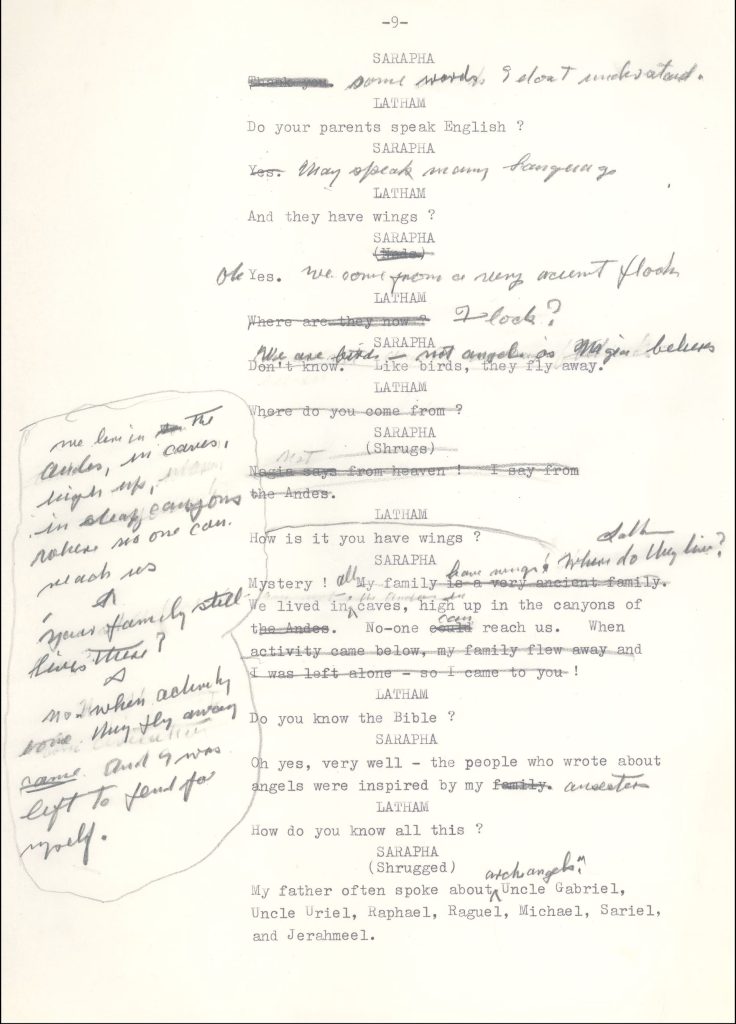 -9-
SARAPHA
Thank you. some words I don't understand.
LATHAM
Do your parents speak English ?
SARAPHA
Yes. They speak many languags
LATHAM
And they have wings ?
SARAPHA
(Nods.)
Oh Yes. We come from a very ancient flock
LATHAM
Where are they now ? Flock?
SARAPHA
We are birds – not angels as believes
Don't know. Like birds, they fly away.
LATHAM
Where do you come from ?
SARAPHA
(Shrugs)
not
Nogia says from heaven ! I say from
the Andes.
LATHAM
How is it you have wings ?
SARAPHA
have wings! Where do they live?
Mystery ! all My family is a very ancient family.
We lived in caves, high up in the canyons of
the Andes. No-one could can reach us. When
activity came below, my family flew away and
I was left alone - so I came to you !
LATHAM
Do you know the Bible ?
SARAPHA
Oh yes, very well - the people who wrote about
angels were inspired by my family. ancestors
LATHAM
How do you know all this ?
SARAPHA
(Shrugged)
archangels"
My father often spoke about Uncle Gabriel,
Uncle Uriel, Raphael, Raguel, Michael, Sariel,
and Jerahmeel.
we live in the
Andes, in caves,
high up,
in steep canyons
where no one can
reach us
your family still
lives there?
No – when activity
they fly away
came and I was
left to fend for
myself.